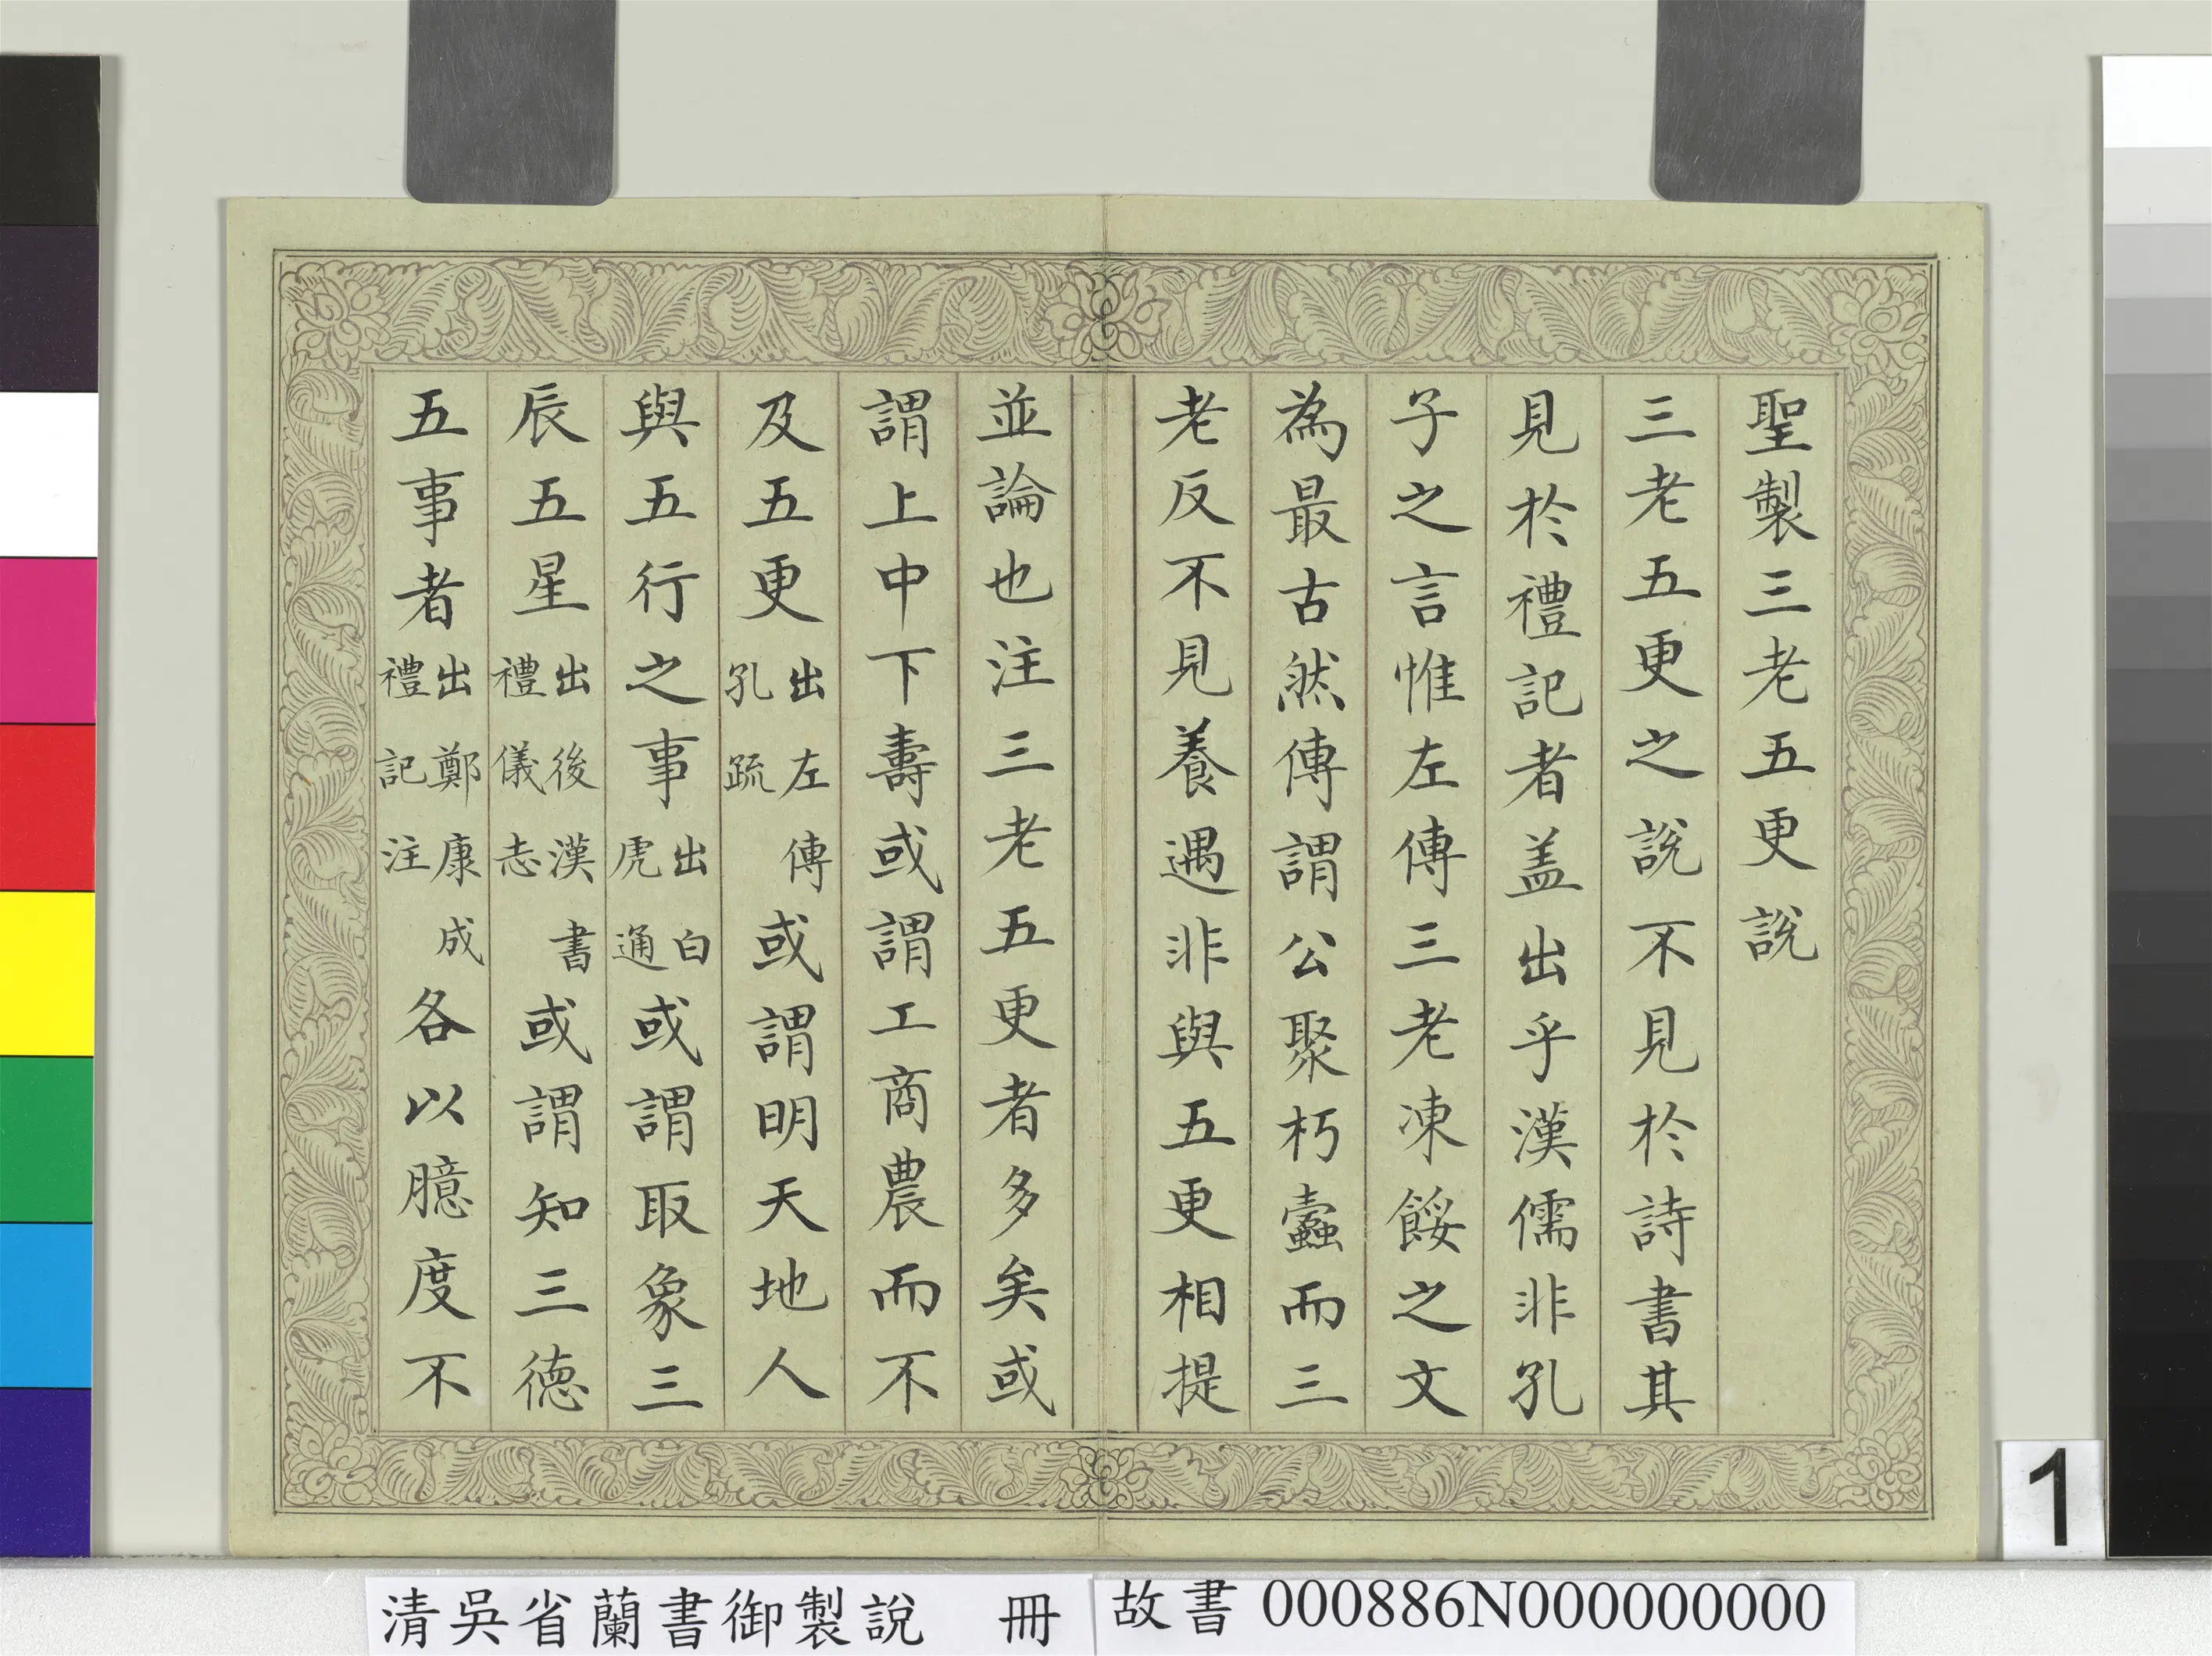 聖製三老五更說
三老五更之說不見於詩書其
見於禮記者盖出乎漢儒非孔
子之言惟左傳三老凍餒之文
為最古然傳謂公聚朽蠹而三
老反不見養遇非與五更相提
並論也注三老五更者多矣或
謂上中下壽或謂工商農而不
及五更出左傳孔疏或謂明天地人
與五行之事出白虎通或謂取象三
辰五星出後漢書禮儀志或謂知三德
五事者出鄭康成禮記注各以臆度不
1
清吳省蘭書御製說 冊
故書 000886N000000000